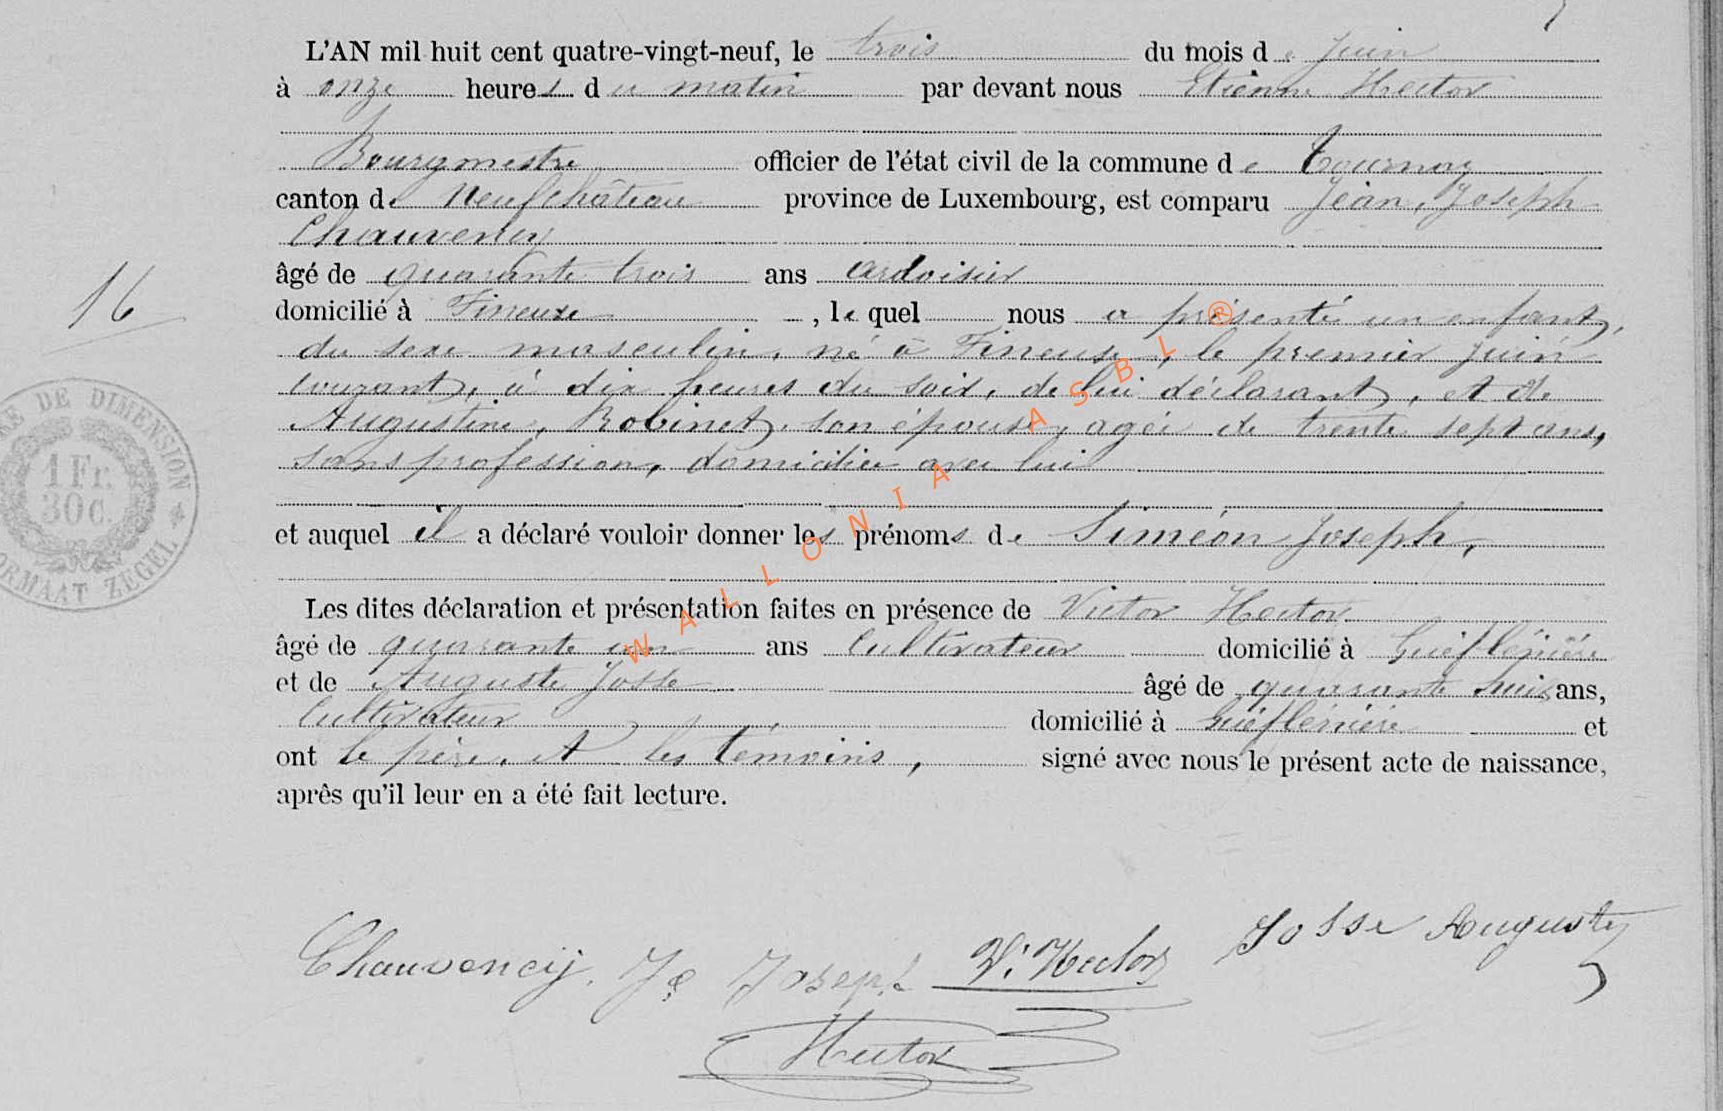 L'AN mil huit cent quatre-vingt-neuf, le trois du mois de Juin
à onze heures du matin par devant nous Etienne Hector
Bourgmestre officier de l'état civil de la commune de Tournay
canton de Neufchâteau province de Luxembourg, est comparu Jean, Joseph
Chauvency
âgé de quarante trois ans ardoisier
domicilié à Fineuse, le quel nous a présenté un enfant,
16
du sexe masculin, né à Fineuse, le premier juin
courant, à dix heures du soir, de lui déclarant, et de
Augustine, Robinet, son épouse, agée de trente sept ans,
sans profession, domiciliée avec lui
et auquel il a déclaré vouloir donner les prénoms de Siméon Joseph,
Les dites déclaration et présentation faites en présence de Victor Hector
âgé de quarante un ans Cultivateur domicilié à
et de Auguste Josse âgé de quarante ans,
Cultivateur domicilié à et
ont le père, et les témoins, signé avec nous le présent acte de naissance,
après qu'il leur en a été fait lecture.
DE DIMENSION
1 Fr.
30 c.
ZEGEL
WALLONIA ASBL ®
Chauvency, Jn Joseph V. Hector Josse Auguste
Hector